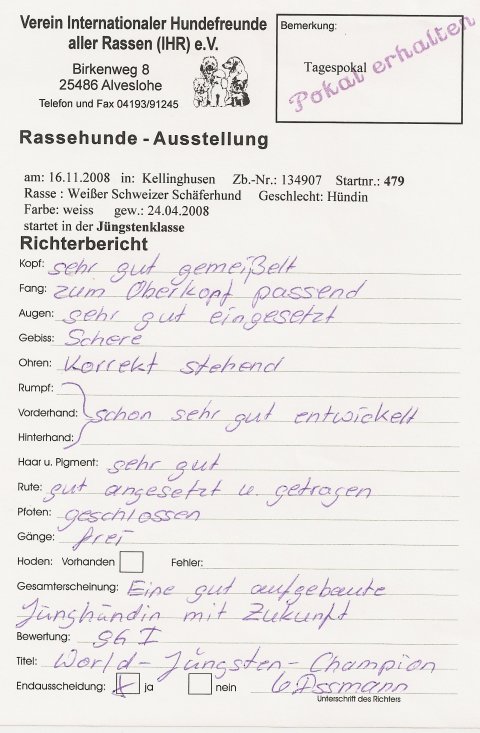 Verein Internationaler Hundefreunde
aller Rassen (IHR) e.V.
Birkenweg 8
25486 Alveslohe
Telefon und Fax 04193/91245
Bemerkung:
Tagespokal
Pokal erhalten
Rassehunde - Ausstellung
am: 16.11.2008 in: Kellinghusen Zb.-Nr.: 134907 Startnr.: 479
Rasse : Weißer Schweizer Schäferhund Geschlecht: Hündin
Farbe: weiss gew.: 24.04.2008
startet in der Jüngstenklasse
Richterbericht
Kopf: sehr gut gemeißelt
Fang: zum Oberkopf passend
Augen: sehr gut eingesetzt
Gebiss: Schere
Ohren: Korrekt stehend
Rumpf:
Vorderhand: schon sehr gut entwickelt
Hinterhand:
Haar u. Pigment: sehr gut
Rute: gut angesetzt u. getragen
Pfoten: geschlossen
Gänge: frei
Hoden: Vorhanden Fehler:
Gesamterscheinung: Eine gut aufgebaute
Junghündin mit Zukunft
Bewertung: SG I
Titel: World-Jüngsten-Champion
Endausscheidung: ja nein Assmann
Unterschrift des Richters